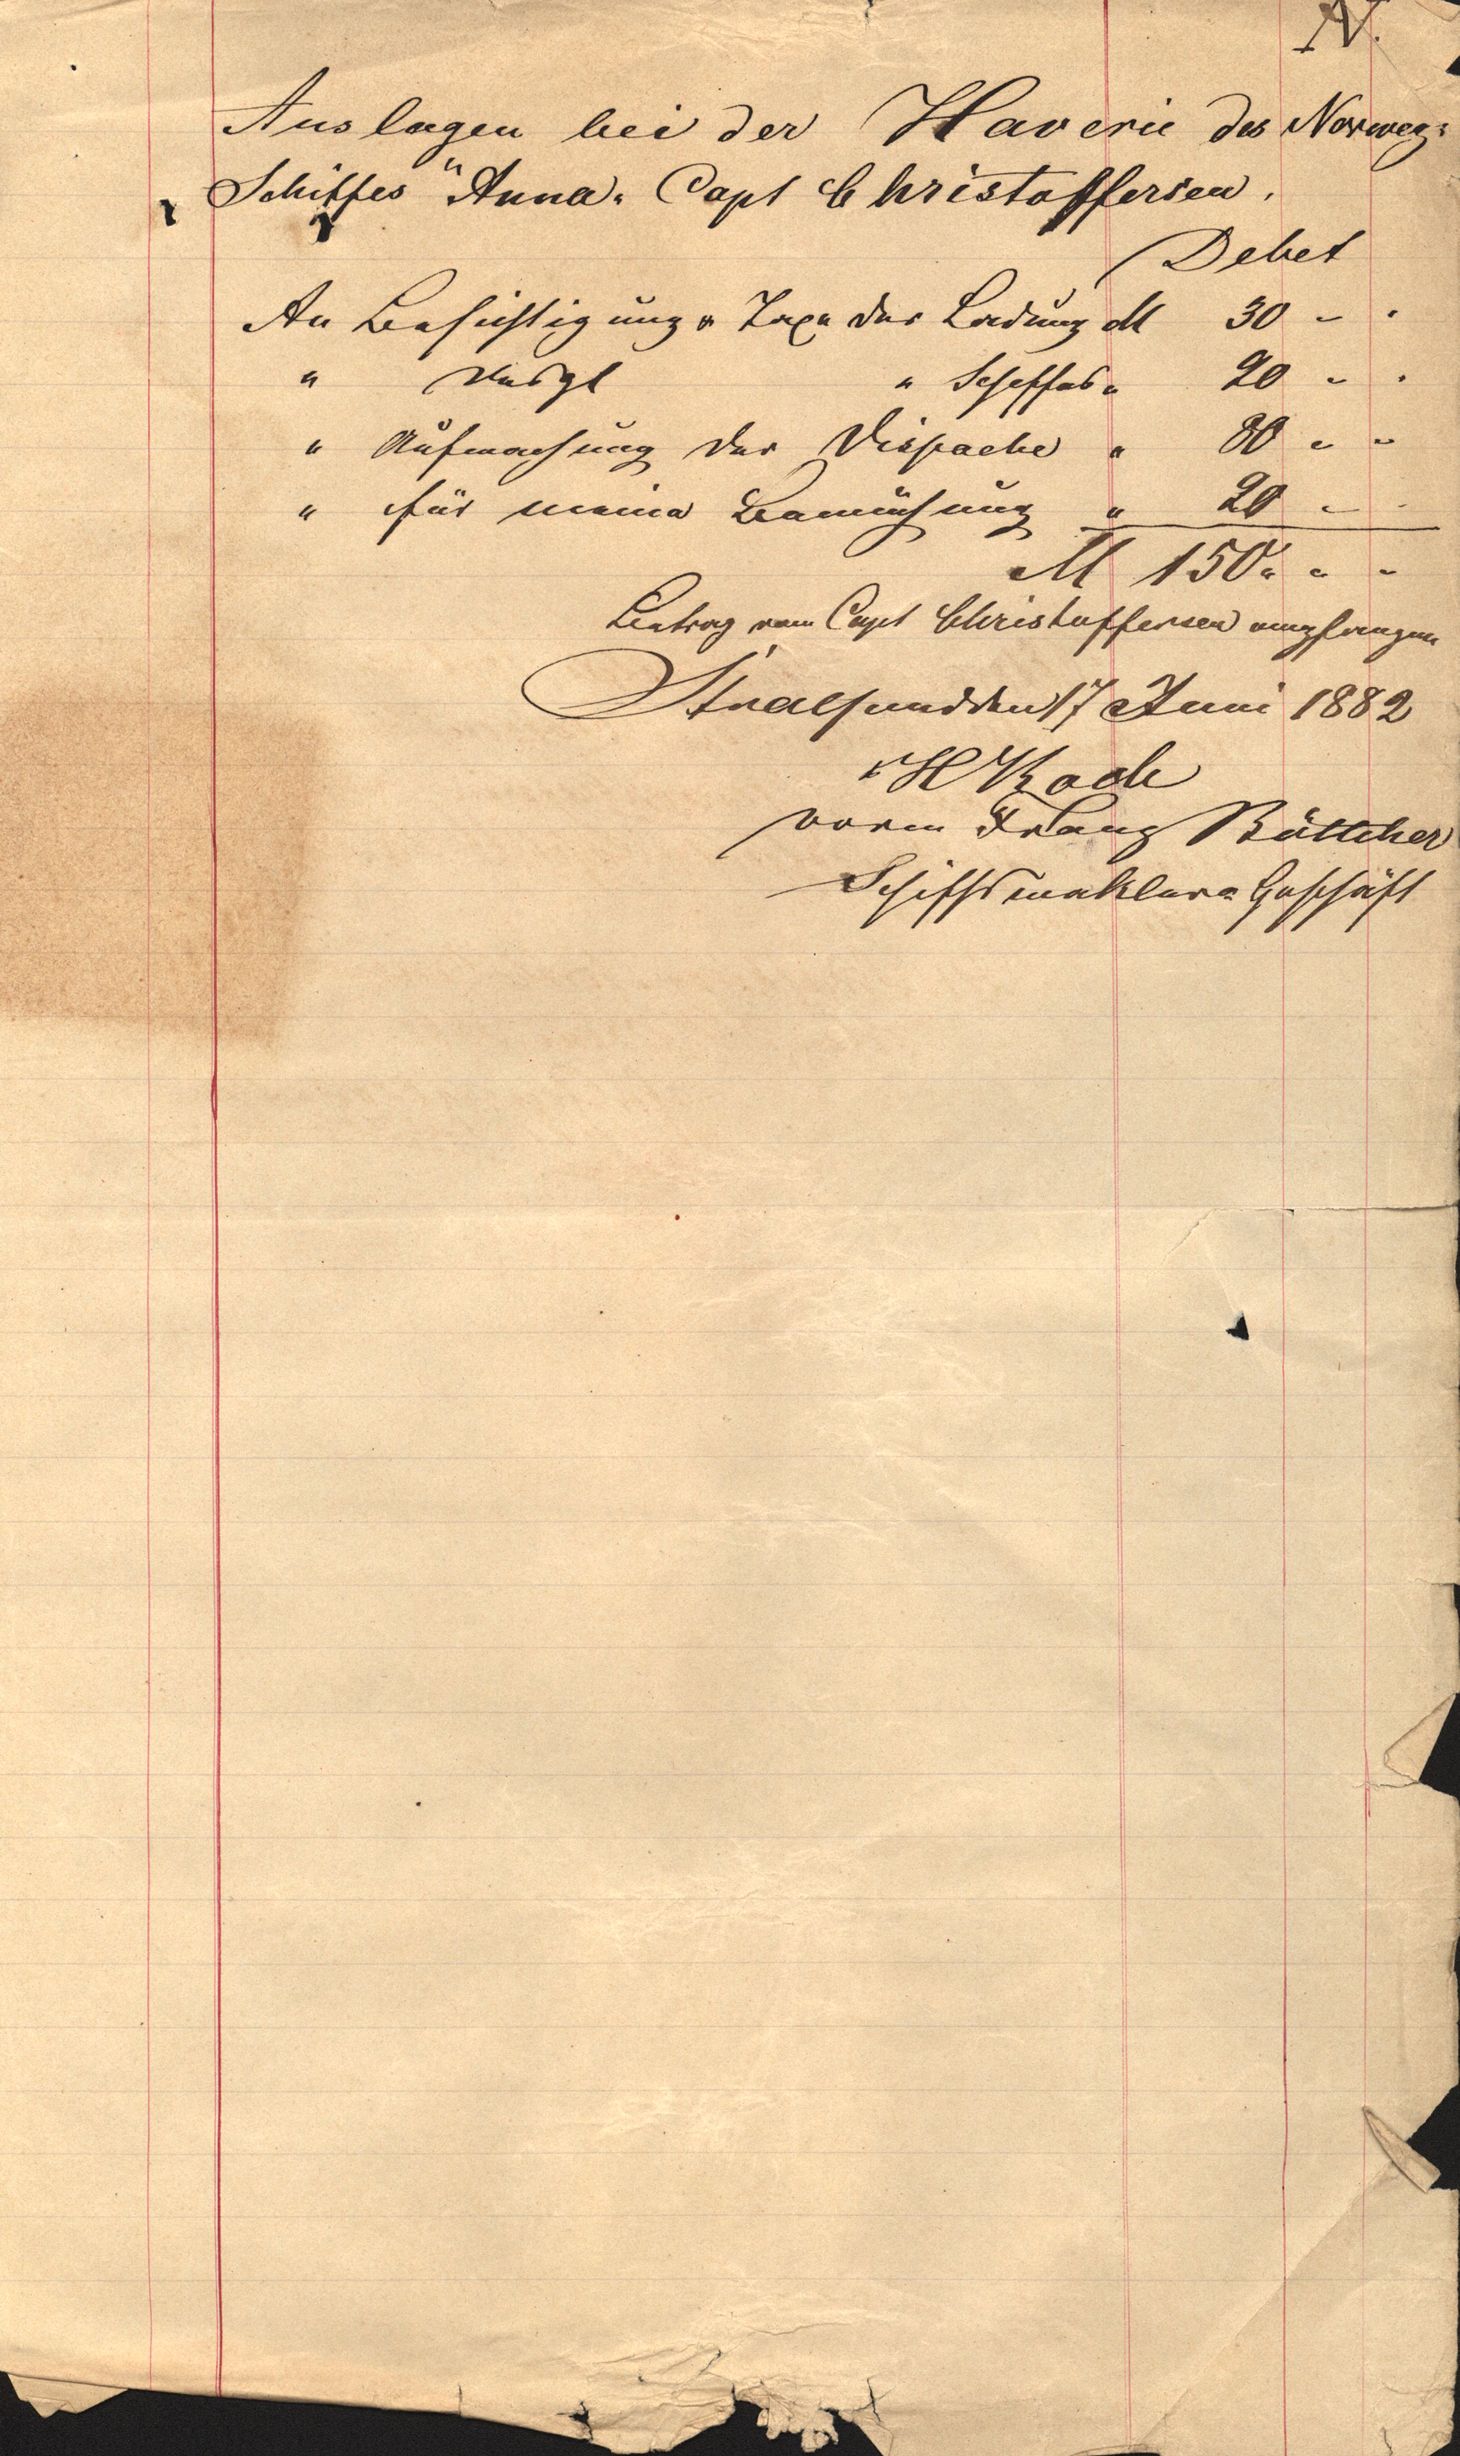 N.
Auslagen bei der Haverie des Norweg:
Schiffes "Anna" Capt Christoffersen.
Debet
An Besichtigung & Taxe der Ladung M 30 " "
" desgl " Schiffes " 20 " "
" Aufmachung der Dispache " 80 " "
" für meine Bemühung " 20 " "
M 150 " "
Betrag vom Capt Christoffersen empfangen
Stralsund den 17 Juni 1882
H Koch
vorm Franz Böttcher
Schiffsmakler=Geschäft